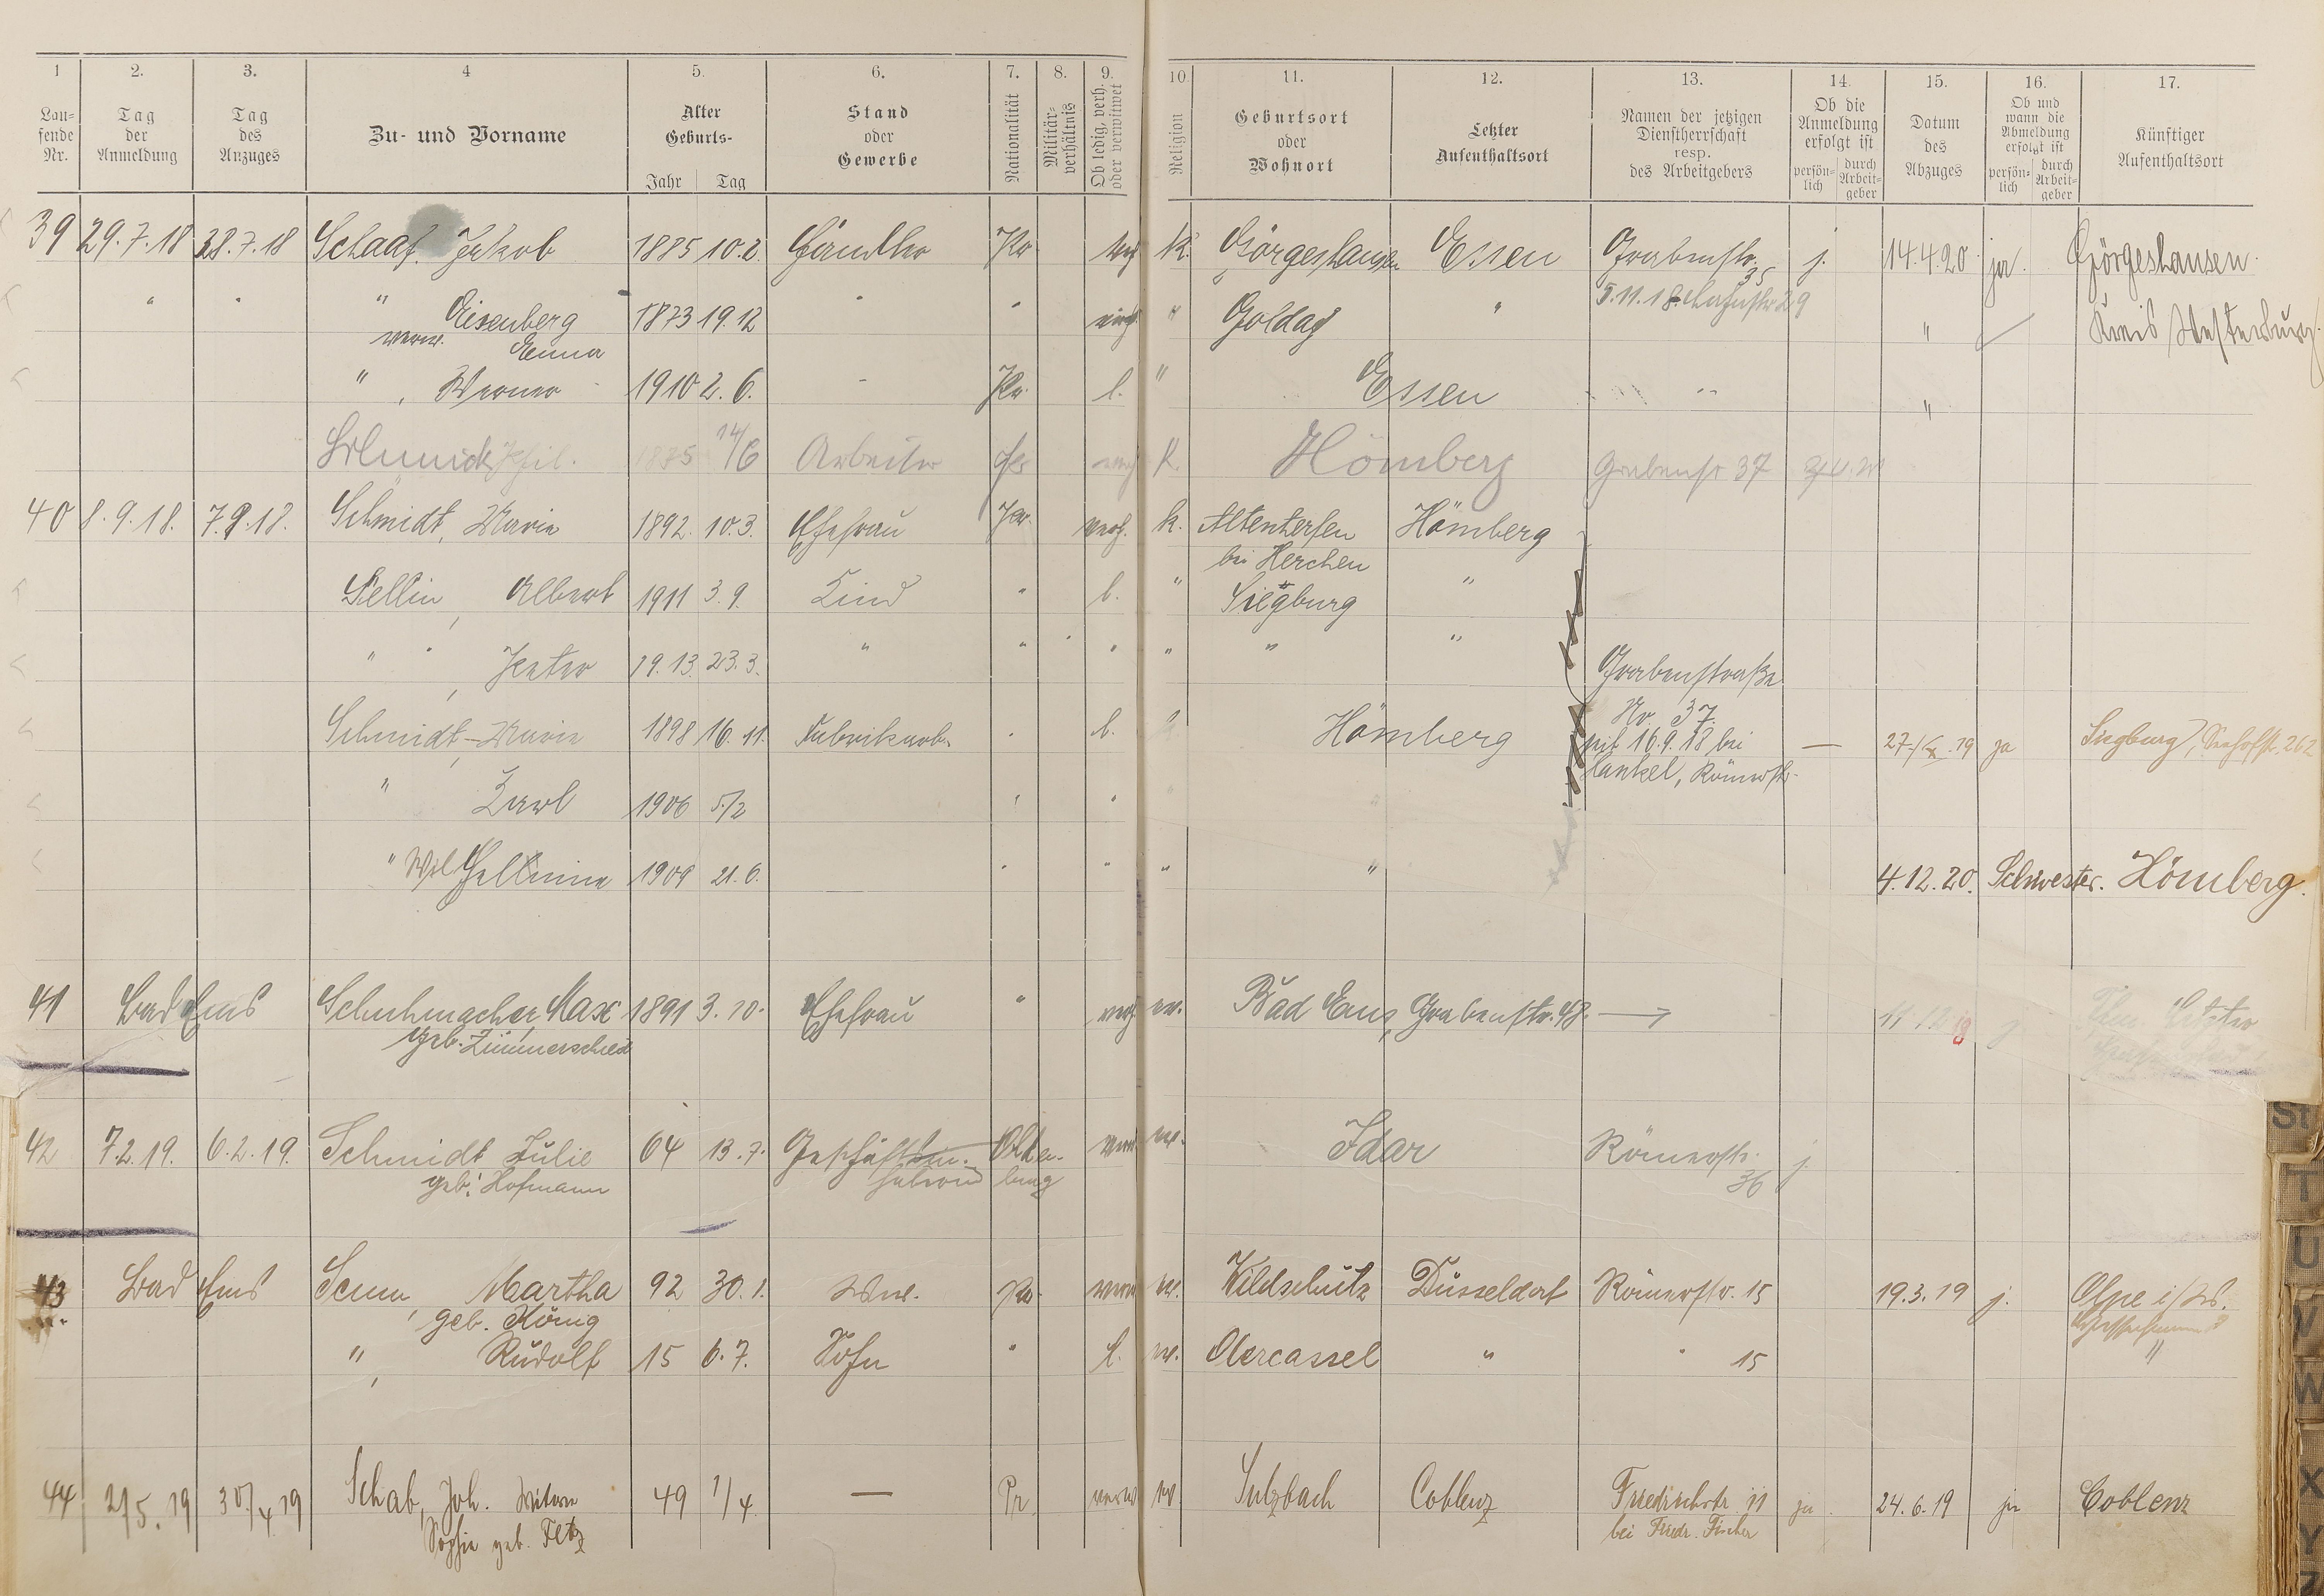 1 2. 3. 4 5. 6. 7. 8. 9. 10. 11. 12. 13. 14. 15. 16. 17.
Lau-
fende
Nr.
Tag
der
Anmeldung
Tag
des
Anzuges
Zu- und Vorname
Alter
Geburts-
Jahr Tag
Stand
oder
Gewerbe
Nationalität
Militär-
verhältnis
Ob ledig, verh.
oder verwitwet
Religion
Geburtsort
oder
Wohnort
Letzter
Aufenthaltsort
Namen der jetzigen
Dienstherrschaft
resp.
des Arbeitgebers
Ob die
Anmeldung
erfolgt ist
persön-
lich
durch
Arbeit-
geber
Datum
des
Abzuges
Ob und
wann die
Abmeldung
erfolgt ist
persön-
lich
durch
Arbeit-
geber
Künftiger
Aufenthaltsort
39 29.7.18 28.7.18 Schaaf Jakob 1885 10.2. Händler Pr. verh. K. Görgeshausen Essen Grabenstr. 35 j. 14.4.20 ja. Görgeshausen
" " " Eisenberg 1873 19.12 " " verh. " " 5.11.18 29 " Kreis Westerburg.
Emma
" Werner 1910 2.6. - Pr. l. " Essen " "
Schmidt Phil. 1875 14/6 Arbeiter Pr verh K. Hömberg Grabenstr 37
40 8.9.18. 7.9.18. Schmidt, Maria 1892. 10.3. Ehefrau Pr. verh. k. Altenherfen Hömberg
bei Herchen
Sellin, Albert 1911 3.9. Kind " l. " Siegburg "
" " , Peter 19.13. 23.3. " " " " " "
Grabenstraße
No. 37.
Schmidt, Maria 1898 16.11. Fabrikarb. " l. Hömberg seit 16.9.18 bei — 27. 19 ja Siegburg,
Hankel, Römerstr.
" Karl 1906 5/2 " " "
" Wilhelmine 1909 21.6. " " " " 4.12.20. Schwester. Hömberg.
41 Bad Ems Schuhmacher, Max 1891 3.10. Ehefrau " verh. ev. Bad Ems, Grabenstr. 48. →
geb. Zimmerschied
42 7.2.19. 6.2.19. Schmidt Julie 64 13.7. Olden- ev. Idar Römerstr. j.
geb. Hofmann burg 36
43 Bad Ems Senn, Martha 92 30.1. Ww. Pr. verw. ev. Wildschütz Düsseldorf Römerstr. 15 19.3.19 j. Olpe i/W.
geb. König
" , Rudolf 15 6.7. Sohn " l. ev. Obercassel " " 15 "
44 2/5.19 30/4 19 Schab, Joh. Witwe 49 1/4 — Pr. verw ev Sulzbach Coblenz Friedrichstr. 11 ja 24.6.19 ja Coblenz
Sophie geb. Fetz bei Friedr. Fischer
St
T
U
V
W
X
Y
Z